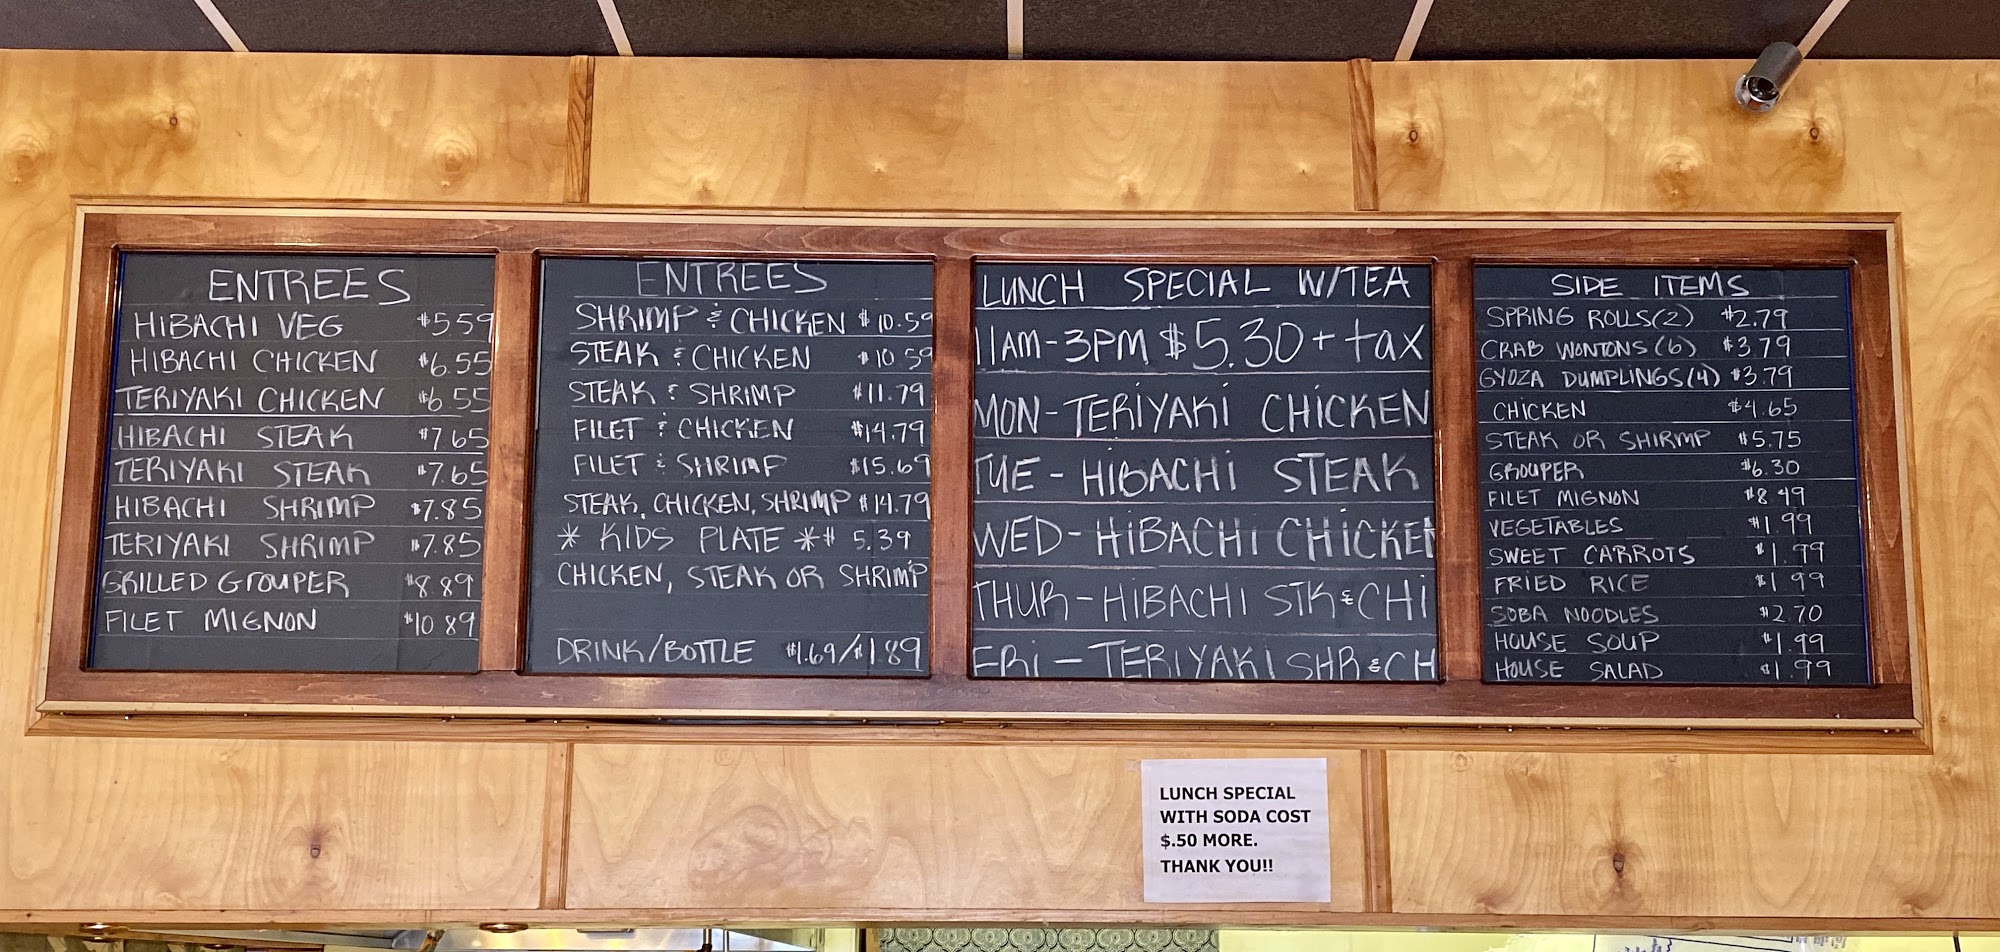 ENTREES
HIBACHI VEG $5 59
HIBACHI CHICKEN $6.55
TERIYAKI CHICKEN $6.55
HIBACHI STEAK $7 65
TERIYAKI STEAK $7.65
HIBACHI SHRIMP $7.85
TERIYAKI SHRIMP $7.85
GRILLED GROUPER $8 89
FILET MIGNON $10 89
ENTREES
SHRIMP & CHICKEN $10.59
STEAK & CHICKEN $10 59
STEAK & SHRIMP $11.79
FILET & CHICKEN $14.79
FILET & SHRIMP $15.69
STEAK, CHICKEN, SHRIMP $14.79
* KIDS PLATE * $ 5.39
CHICKEN, STEAK OR SHRIMP
DRINK/BOTTLE $1.69/$1.89
LUNCH SPECIAL W/TEA
11AM-3PM $5.30 + tax
MON-TERIYAKI CHICKEN
TUE - HIBACHI STEAK
WED-HIBACHI CHICKEN
THUR-HIBACHI STK & CHI
FRI - TERIYAKI SHR & CH
SIDE ITEMS
SPRING ROLLS(2) $2.79
CRAB WONTONS (6) $3.79
GYOZA DUMPLINGS(4) $3.79
CHICKEN $4.65
STEAK OR SHIRMP $5.75
GROUPER $6.30
FILET MIGNON $8 49
VEGETABLES $1.99
SWEET CARROTS $1.99
FRIED RICE $1.99
SOBA NOODLES $2.70
HOUSE SOUP $1.99
HOUSE SALAD $1.99
LUNCH SPECIAL
WITH SODA COST
$.50 MORE.
THANK YOU!!